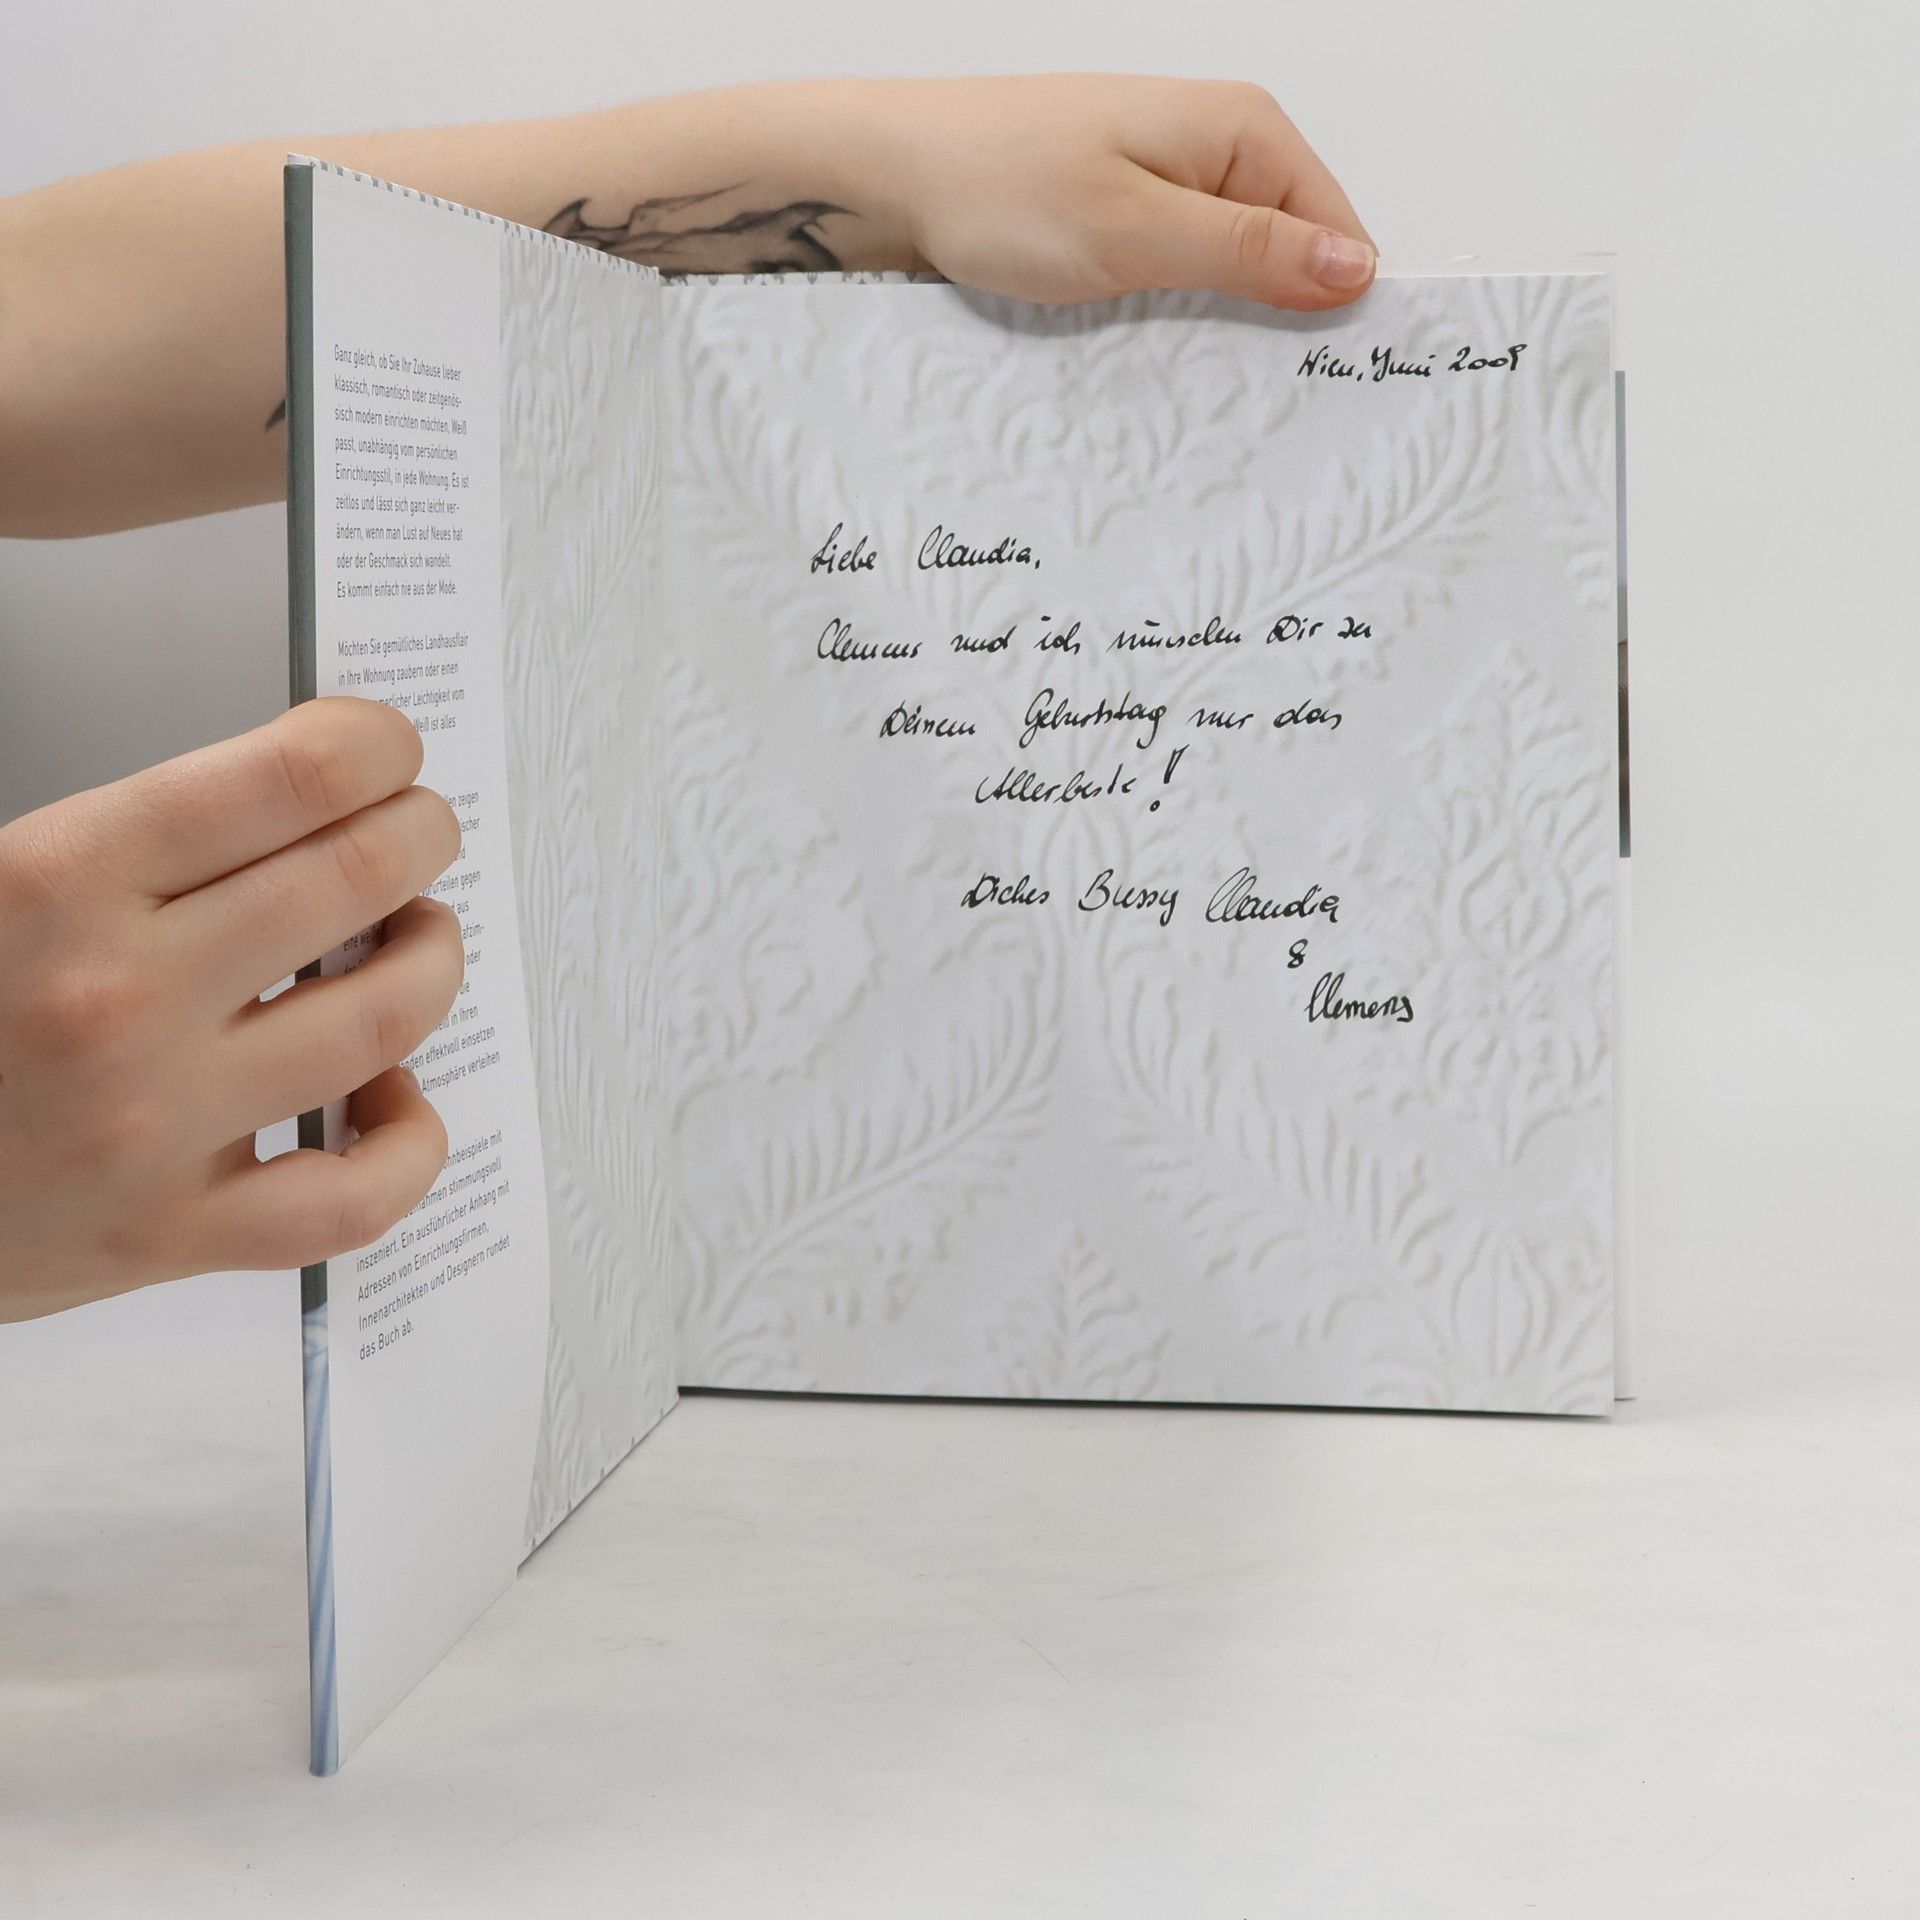 Ganz gleich, ob Sie Ihr Zuhause lieber
klassisch, romantisch oder zeitgenös-
sisch modern einrichten möchten, Weiß
passt, unabhängig vom persönlichen
Einrichtungsstil, in jede Wohnung. Es ist
zeitlos und lässt sich ganz leicht ver-
ändern, wenn man Lust auf Neues hat
oder der Geschmack sich wandelt.
Es kommt einfach nie aus der Mode.
Möchten Sie gemütliches Landhausflair
in Ihre Wohnung zaubern oder einen
merlicher Leichtigkeit vom
Weiß ist alles
zeigen
gegen
aus
eine weiße
oder
die
in Ihren
effektvoll einsetzen
Atmosphäre verleihen
ohnbeispiele mit
stimmungsvoll
inszeniert. Ein ausführlicher Anhang mit
Adressen von Einrichtungsfirmen,
Innenarchitekten und Designern rundet
das Buch ab.
Wien, Juni 2009
Liebe Claudia,
Clemens und ich wünschen Dir zu
Deinem Geburtstag nur das
Allerbeste!
Dickes Bussy Claudia
&
Clemens